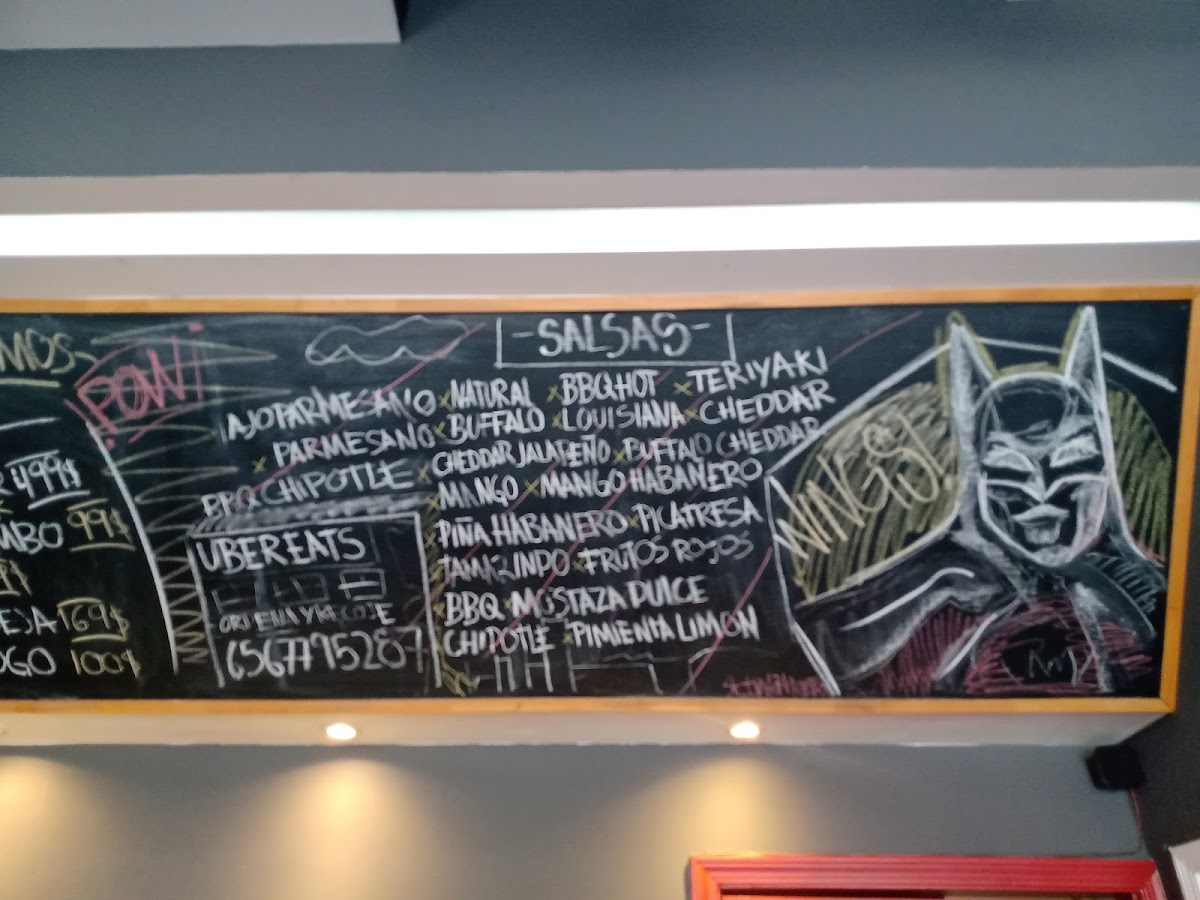 MOS
POW!
499$
MBO 99$
169$
OGO 100$
-SALSAS-
AJO PARMESANO x NATURAL x BBQ HOT x TERIYAKI
x PARMESANO x BUFFALO x LOUISIANA x CHEDDAR
BBQ CHIPOTLE x CHEDDAR JALAPEÑO x BUFFALO CHEDDAR
MANGO x MANGO HABANERO
PIÑA HABANERO x PICAFRESA
TAMARINDO x FRUTOS ROJOS
x BBQ x MOSTAZA DULCE
CHIPOTLE x PIMIENTA LIMON
UBER EATS
ORDENA Y RECOGE
WINGS!